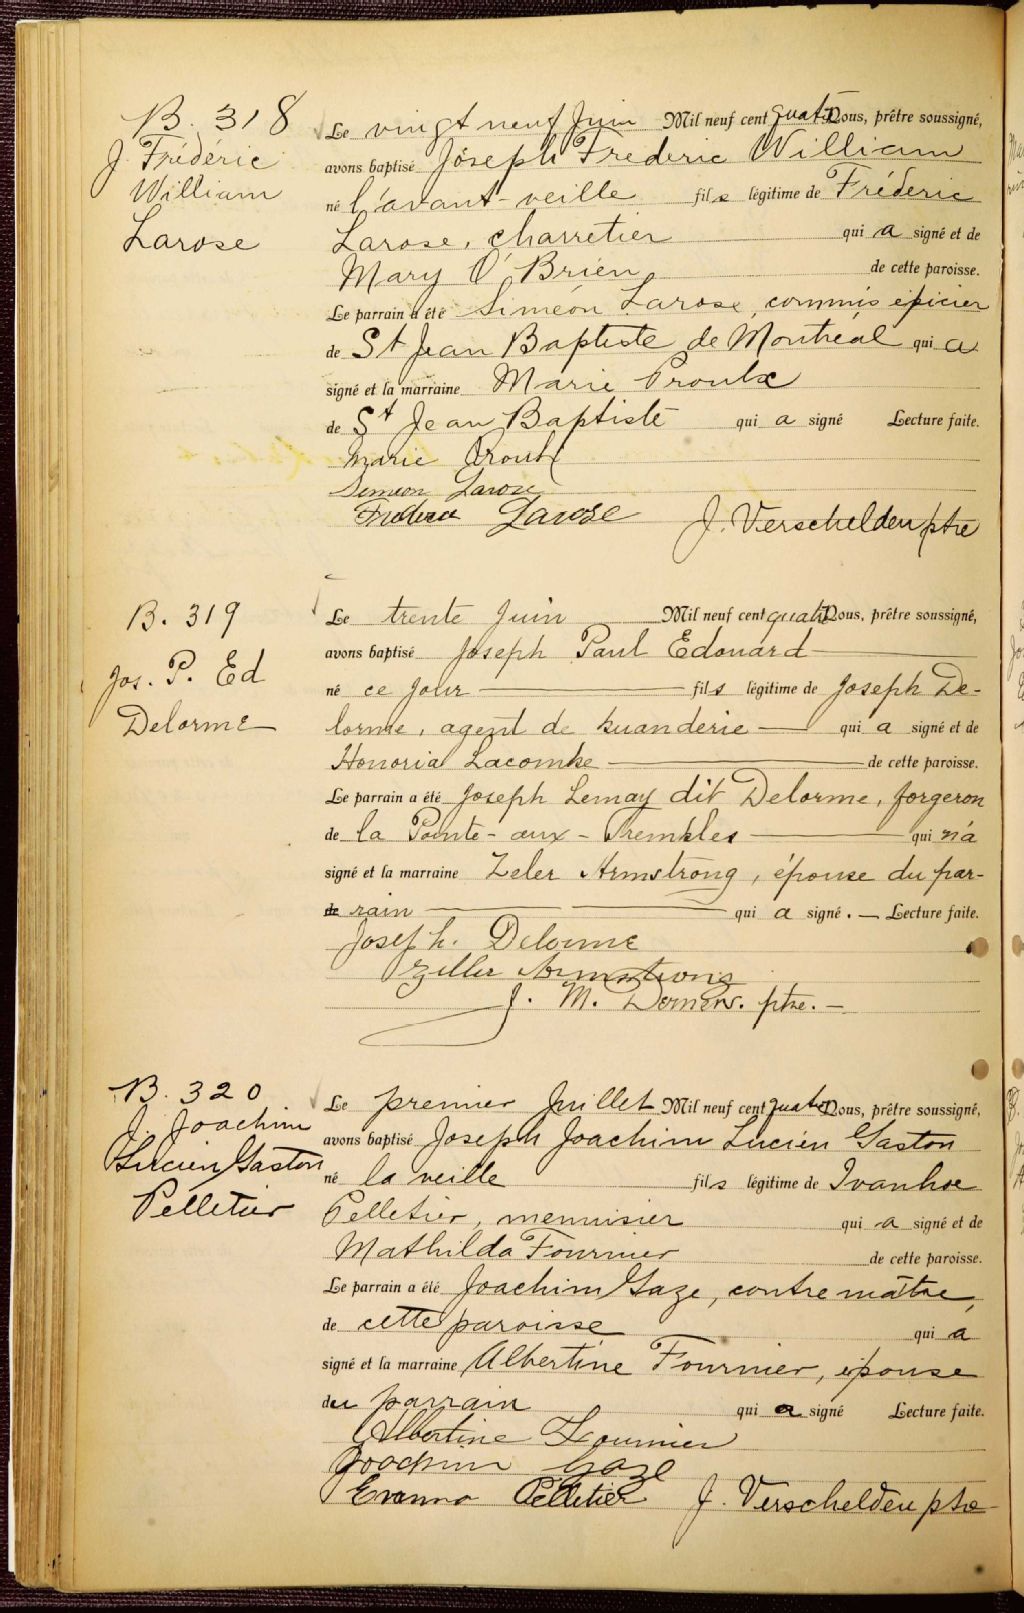 B. 318
J. Frédéric
William
Larose
Le vingt neuf Juin Mil neuf cent quatre Nous, prêtre soussigné,
avons baptisé Joseph Frederic William
né l'avant-veille fils légitime de Fréderic
Larose, charretier qui a signé et de
Mary O'Brien de cette paroisse.
Le parrain a été Siméon Larose, commis épicier
de St Jean Baptiste de Montréal qui a
signé et la marraine Marie Proulx
de St Jean Baptiste qui a signé Lecture faite.
Marie Proulx
Simeon Larose
Frederic Larose J. Verschelden ptre
B. 319
Jos. P. Ed
Delorme
Le trente Juin Mil neuf cent quatre Nous, prêtre soussigné,
avons baptisé Joseph Paul Edouard
né ce jour fils légitime de Joseph De-
lorme, agent de buanderie qui a signé et de
Honoria Lacombe de cette paroisse.
Le parrain a été Joseph Lemay dit Delorme, forgeron
de la Pointe-aux-Trembles qui n'a
signé et la marraine Zeler Armstrong, épouse du par-
de rain qui a signé. — Lecture faite.
Joseph. Delorme
Zeller Armstrong
J. M. Demers. ptre. —
B. 320
J. Joachim
Lucien Gaston
Pelletier
Le premier Juillet Mil neuf cent quatre Nous, prêtre soussigné,
avons baptisé Joseph Joachim Lucien Gaston
né la veille fils légitime de Ivanhoe
Pelletier, menuisier qui a signé et de
Mathilda Fournier de cette paroisse.
Le parrain a été Joachim Gaze, contre maître,
de cette paroisse qui a
signé et la marraine Albertine Fournier, épouse
du parrain qui a signé Lecture faite.
Albertine Fournier
Joachim Gaze
Pelletier J. Verschelden ptre